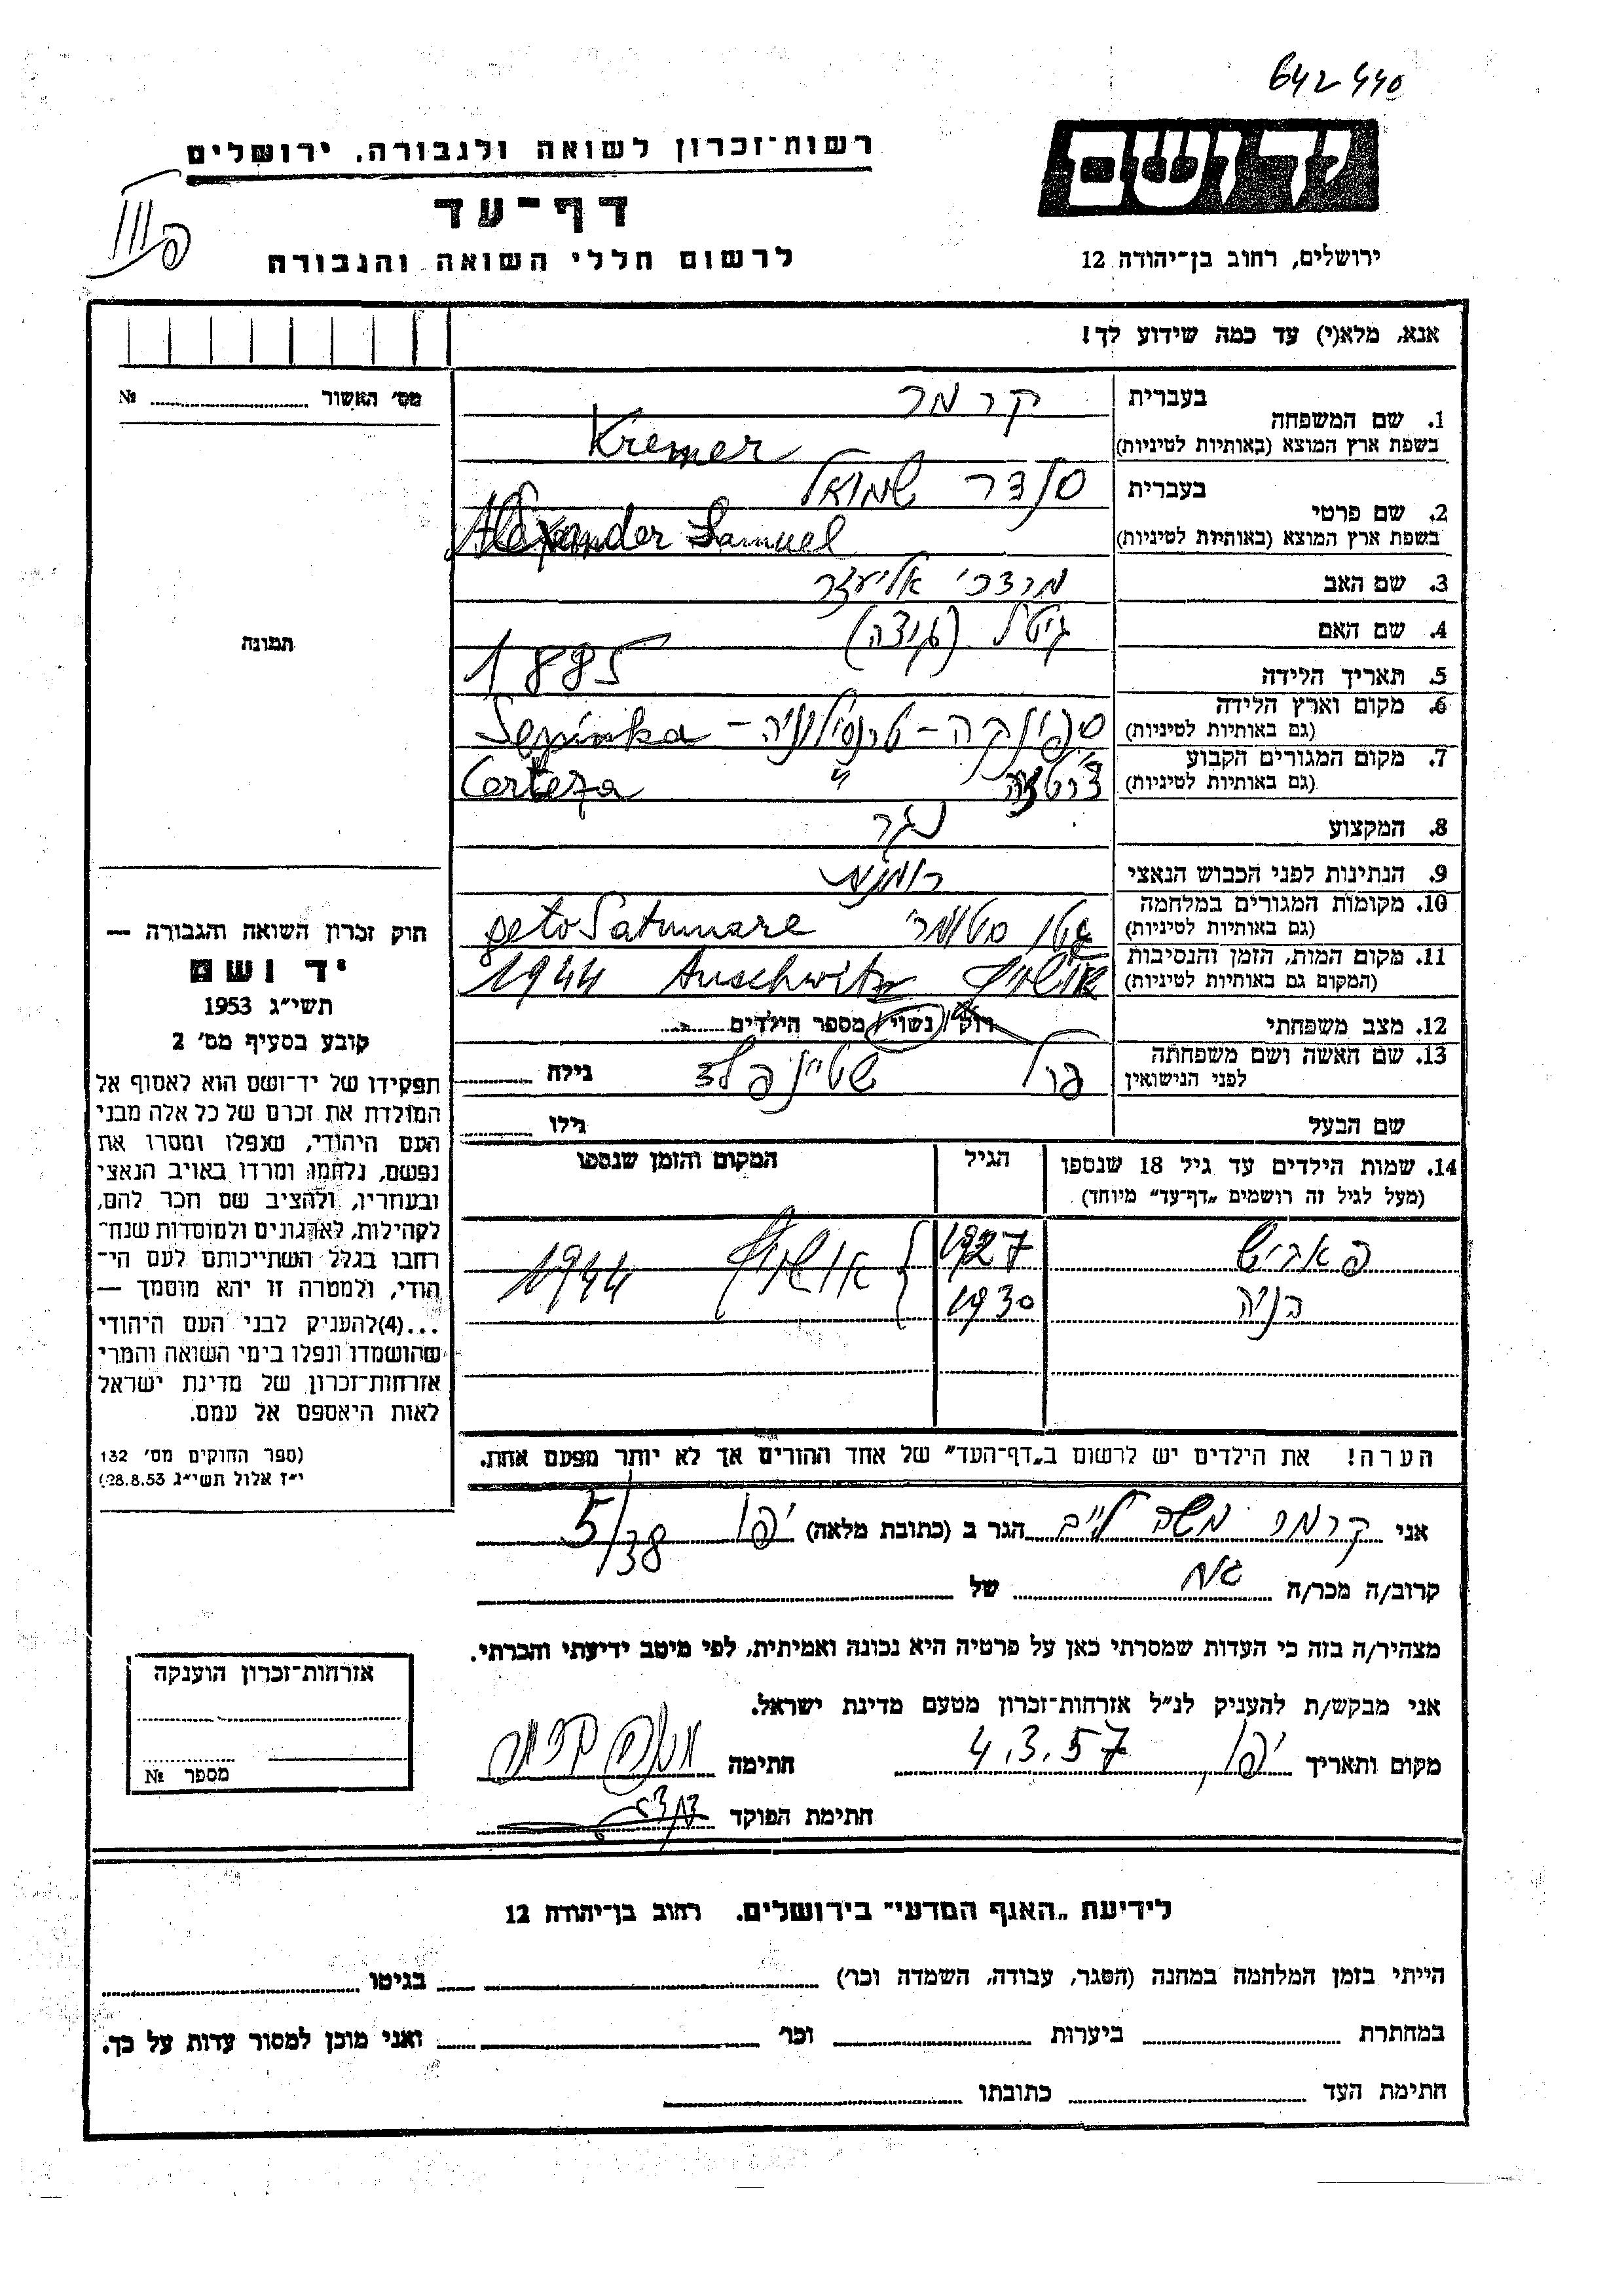 642440
רשות־זכרון לשואה ולגבורה. ירושלים
יד ושם
דף־עד
ירושלים, רחוב בן־יהודה 12
לרשום חללי השואה והגבורה
אנא, מלא(י) עד כמה שידוע לך!
מס׳ האשור №
תמונה
1. שם המשפחה
בעברית קרמר
בשפת ארץ המוצא (באותיות לטיניות) Kremer
2. שם פרטי
בעברית סנדר שמואל
בשפת ארץ המוצא (באותיות לטיניות) Alexander Samuel
3. שם האב מרדכי אליעזר
4. שם האם גיטל
5. תאריך הלידה 1885
6. מקום וארץ הלידה ספינקה - טרנסילווניה - Sepinka
(גם באותיות לטיניות)
7. מקום המגורים הקבוע צ׳רטזה " Certeza
(גם באותיות לטיניות)
8. המקצוע נגר
9. הנתינות לפני הכבוש הנאצי רומנית
10. מקומות המגורים במלחמה גטו סטומרי geto Satumare
(גם באותיות לטיניות)
11. מקום המות, הזמן והנסיבות אושויץ Auschwitz 1944
(המקום גם באותיות לטיניות)
12. מצב משפחתי רוק/ נשוי/ מספר הילדים
13. שם האשה ושם משפחתה פרל שטיינהולץ גילה
לפני הנישואין
שם הבעל גילו
14. שמות הילדים עד גיל 18 שנספו הגיל המקום והזמן שנספו
(מעל לגיל זה רושמים „דף־עד״ מיוחד)
פאביש 1927 אושויץ 1944
בניה 1930
הערה! את הילדים יש לרשום ב„דף־העד״ של אחד ההורים אך לא יותר מפעם אחת.
חוק זכרון השואה והגבורה —
יד ושם
תשי״ג 1953
קובע בסעיף מס׳ 2
תפקידו של יד־ושם הוא לאסוף אל
המולדת את זכרם של כל אלה מבני
העם היהודי, שנפלו ומסרו את
נפשם, נלחמו ומרדו באויב הנאצי
ובעוזריו, ולהציב שם וזכר להם,
לקהילות, לארגונים ולמוסדות שנח־
רבו בגלל השתייכותם לעם הי־
הודי, ולמטרה זו יהא מוסמך —
...(4)להעניק לבני העם היהודי
שהושמדו ונפלו בימי השואה והמרי
אזרחות־זכרון של מדינת ישראל
לאות היאספם אל עמם.
(ספר החוקים מס׳ 132
י״ז אלול תשי״ג 28.8.53)
אני קרמר משה לייב הגר ב (כתובת מלאה) יפו 5/38
קרוב/ה מכר/ה אח של
מצהיר/ה בזה כי העדות שמסרתי כאן על פרטיה היא נכונה ואמיתית, לפי מיטב ידיעתי והכרתי.
אני מבקש/ת להעניק לנ״ל אזרחות־זכרון מטעם מדינת ישראל.
מקום ותאריך יפו, 4.3.57 חתימה
חתימת הפוקד
אזרחות־זכרון הוענקה
מספר №
לידיעת „האגף המדעי״ בירושלים. רחוב בן־יהודה 12
הייתי בזמן המלחמה במחנה (הסגר, עבודה, השמדה וכו׳) בגיטו
במחתרת ביערות וכו׳ ואני מוכן למסור עדות על כך.
חתימת העד כתובתו